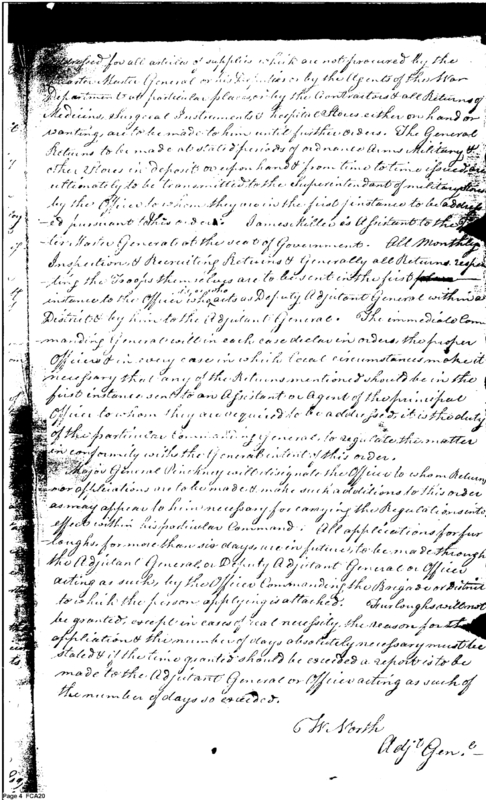 dressed for all articles of supplies which are not procured by the
Quarter Master General or his Deputies or by the Agents of the War
Department at particular places or by the Contractors & all Returns of
Medicine, Surgical Instruments & hospital Stores either on hand or
wanting are to be made to him until further orders. The General
Returns to be made at stated periods of ordnance Arms Military &
other Stores in deposit or upon hand & from time to time issued are
ultimately to be transmitted to the Superintendant of military stores
by the Officer to whom they are in the first instance to be address
ed pursuant to this order. James Miller is Assistant to the
ter Master General at the seat of Government. All Monthly
Inspection & Recruiting Returns & Generally all Returns respec
ting the Troops themselves are to be sent in the first
instance to the Officer who acts as Deputy Adjutant General within a
District & by him to the Adjutant General. The immediate Com
manding General will in each case declare in orders the proper
Officers & in every case in which local circumstances make it
necessary that any of the Returns mentioned should be in the
first instance sent to an Assistant or Agent of the principal
Officer to whom they are required to be addressed, it is the duty
of the particular Commanding General to regulate the matter
in conformity with the General intent of this order.
Major General Pinckney will designate the Officer to whom Return
or applications are to be made & make such additions to this order
as may appear to him necessary for carrying the Regulations into
effect within his particular Command. All applications for fur
loughs for more than six days are in future to be made through
the Adjutant General or Deputy Adjutant General or Officer
acting as such, by the Officer Commanding the Brigade or district
to which the person applying is attached. Furloughs will not
be granted, except in cases of real necessity, the reason for the
application & the number of days absolutely necessary must be
stated & if the time granted should be exceeded a report is to be
made to the Adjutant General or Officer acting as such of
the number of days so exceeded.
W. North
Adjt. Genl.
Page 4 FCA20